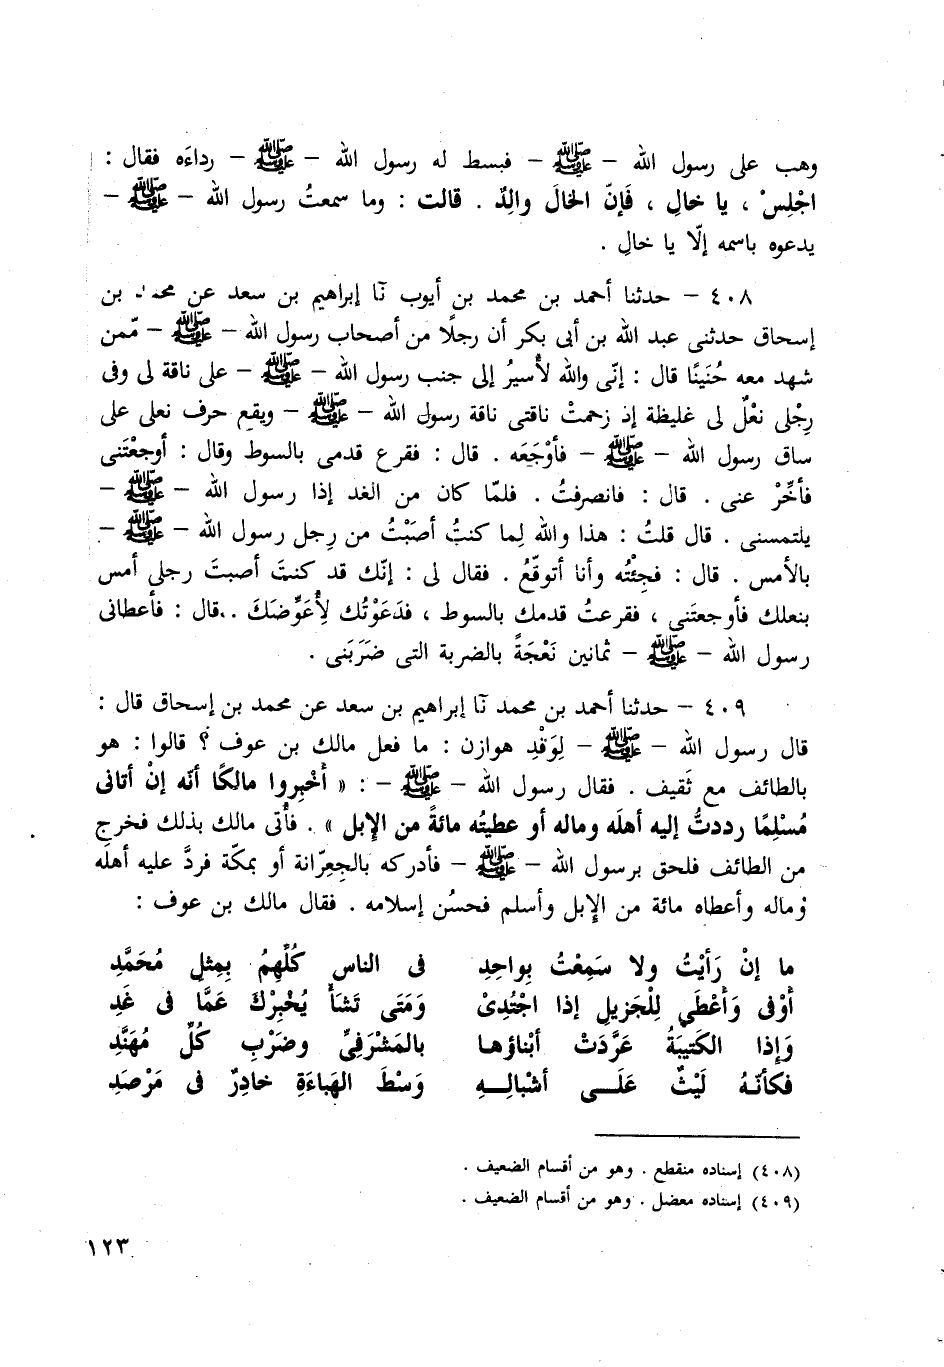 وهب على رسول الله – ﷺ – فبسط له رسول الله – ﷺ – رداءَه فقال :
اجْلِسْ ، يا خالِ ، فَإنّ الخالَ والِدٌ . قالت : وما سمعتُ رسول الله – ﷺ –
يدعوه باسمه إلّا يا خالِ .
٤٠٨ – حدثنا أحمد بن محمد بن أيوب نَا إبراهيم بن سعد عن محمد بن
إسحاق حدثنى عبد الله بن أبى بكر أن رجلًا من أصحاب رسول الله – ﷺ – ممّن
شهد معه حُنَينًا قال : إنّى والله لأسيرُ إلى جنب رسول الله – ﷺ – على ناقة لى وفى
رِجْلى نعْلٌ لى غليظة إذ زحمتْ ناقتى ناقة رسول الله – ﷺ – ويقع حرف نعلى على
ساق رسول الله – ﷺ – فأوْجَعَه . قال : فقرع قدمى بالسوط وقال : أوجعْتَنى
فأخِّرْ عنى . قال : فانصرفتُ . فلمّا كان من الغد إذا رسول الله – ﷺ –
يلتمسنى . قال قلتُ : هذا والله لِما كنتُ أصَبْتُ من رِجل رسول الله – ﷺ –
بالأمس . قال : فجِئْتُه وأنا أتوقّعُ . فقال لى : إنّك قد كنتَ أصبتَ رجلى أمس
بنعلك فأوجعتَنى ، فقرعتُ قدمك بالسوط ، فدَعَوْتُك لِأُعَوِّضَكَ . قال : فأعطانى
رسول الله – ﷺ – ثمانين نَعْجَةً بالضربة التى ضَرَبَنى .
٤٠٩ – حدثنا أحمد بن محمد نَا إبراهيم بن سعد عن محمد بن إسحاق قال :
قال رسول الله – ﷺ – لِوَفْدِ هوازن : ما فعل مالك بن عوف ؟ قالوا : هو
بالطائف مع ثَقيف . فقال رسول الله – ﷺ – : « أخْبِروا مالكًا أنّه إنْ أتانى
مُسْلِمًا رددتُّ إليه أهلَه وماله أو عطيته مائةً من الإبل » . فأُتى مالك بذلك فخرج
من الطائف فلحق برسول الله – ﷺ – فأدركه بالجِعِرّانة أو بمكّة فردَّ عليه أهلَه
وماله وأعطاه مائة من الإبل وأسلم فحسُن إسلامه . فقال مالك بن عوف :
ما إنْ رَأيْتُ ولا سَمِعْتُ بِواحِدِ فى الناس كُلِّهِمُ بِمِثلِ مُحَمَّدِ
أوْفى وَأعْطَي لِلْجَزيلِ إذا اجْتُدِىْ وَمَتَى تَشَأْ يُخْبِرْكَ عَمَّا فى غَدِ
وَإذا الكَتيبَةُ عَرَّدَتْ أبْناؤها بالمَشْرَفِىِّ وضَرْبِ كُلِّ مُهَنَّدِ
فكأنّهُ لَيْثٌ عَلَى أشْبالِهِ وَسْطَ الهَباءَةِ خادِرٌ فى مَرْصَدِ
(٤٠٨) إسناده منقطع . وهو من أقسام الضعيف .
(٤٠٩) إسناده معضل . وهو من أقسام الضعيف .
١٢٣